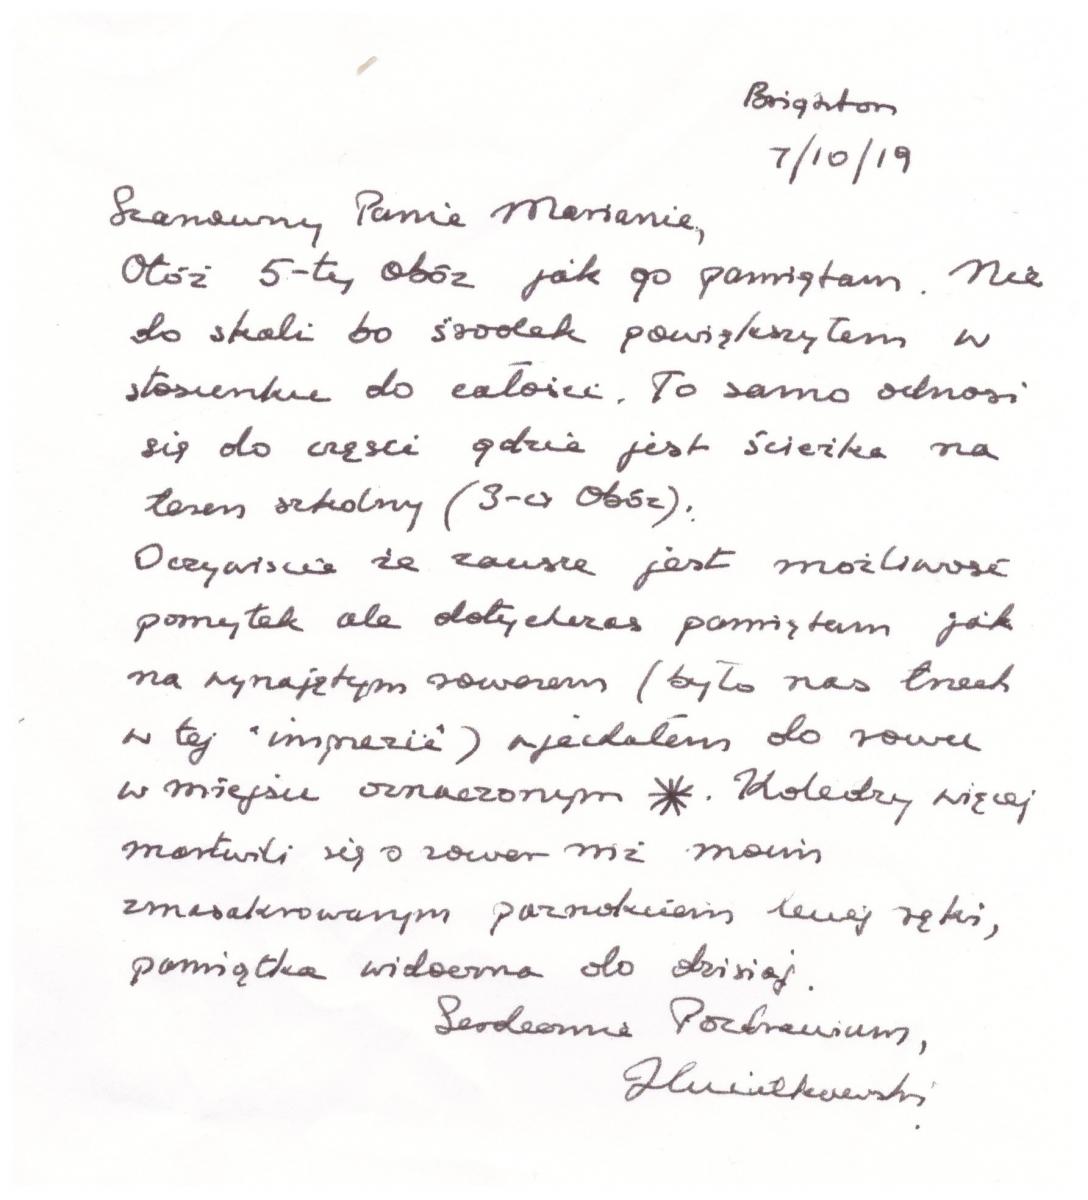 Brighton
7/10/19
Szanowny Panie Marianie,
Otóż 5-ty obóz jak go pamiętam. Nie
do skali bo środek powiększyłem w
stosunku do całości. To samo odnosi
się do części gdzie jest ścieżka na
teren szkolny (3-ci Obóz).
Oczywiscie że zawsze jest możliwość
pomyłek ale dotychczas pamiętam jak
na wynajętym rowerem (było nas trzech
w tej "imprezie") wjechałem do rowu
w miejscu oznaczonym *. Koledzy więcej
martwili się o rower niż moim
zmasakrowanym paznokciem lewej ręki,
pamiątka widoczna do dzisiaj.
Serdecznie Pozdrawiam,